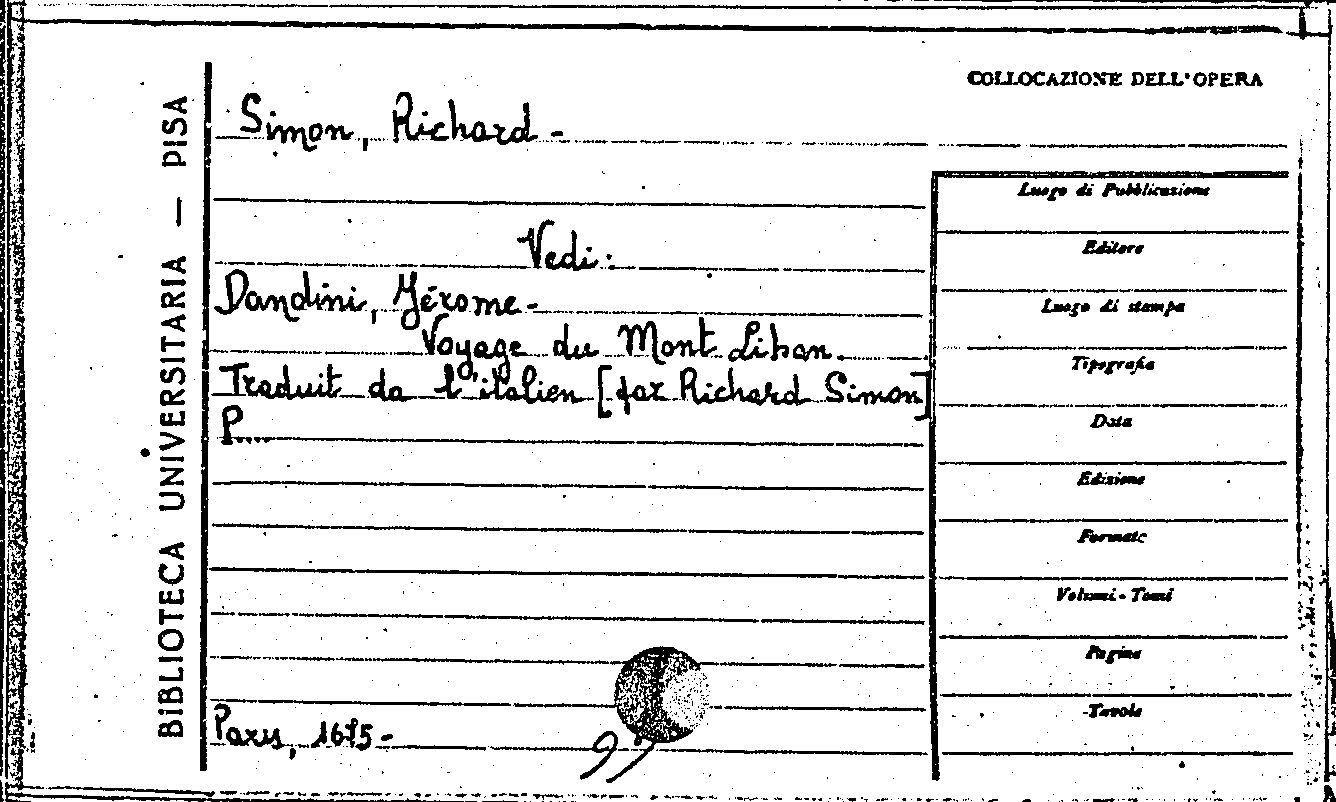 BIBLIOTECA UNIVERSITARIA — PISA
COLLOCAZIONE DELL'OPERA
Simon, Richard -
Vedi:
Dandini, Jérome -
Voyage du Mont Liban.
Traduit da l'italien [par Richard Simon]
P....
Paris, 1675 -
Luogo di Pubblicazione
Editore
Luogo di stampa
Tipografia
Data
Edizione
Formato
Volumi - Tomi
Pagine
Tavole